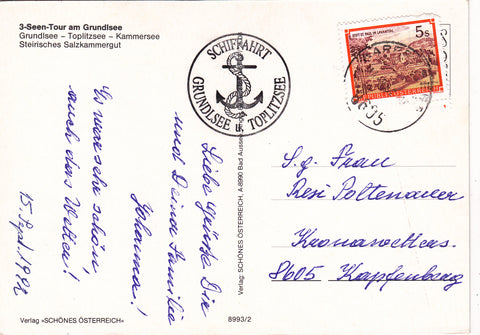 3-Seen-Tour am Grundlsee
Grundlsee – Toplitzsee – Kammersee
Steirisches Salzkammergut
SCHIFFAHRT
GRUNDLSEE u. TOPLITZSEE
STIFT ST. PAUL IM LAVANTTAL
5s
REPUBLIK ÖSTERREICH
8605
Liebe Grüsse Dir
und Deiner Familie
Johanna!
Es war sehr schön
auch das Wetter!
15. Sept. 1992
S.g. Frau
Resi Poltenauer
8605 Kapfenberg
Verlag «SCHÖNES ÖSTERREICH»
8993/2
Verlag: SCHÖNES ÖSTERREICH, A-8990 Bad Aussee